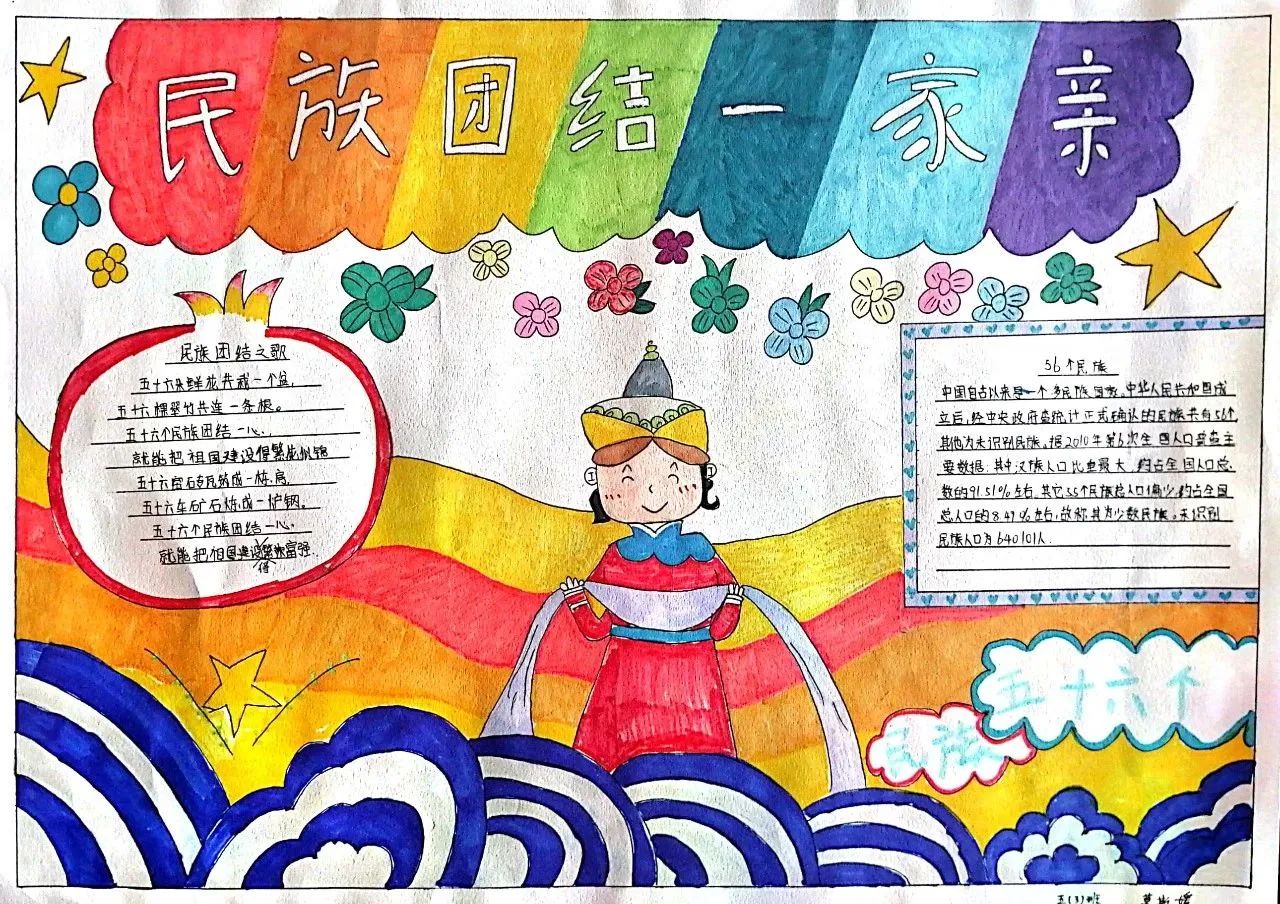 民族团结一家亲
民族团结之歌
五十六朵鲜花共栽一个盆,
五十六棵翠竹共连一条根。
五十六个民族团结一心、
就能把祖国建设得繁花似锦
五十六窑砖瓦筑成一栋房,
五十六车矿石炼成一炉钢。
五十六个民族团结一心.
就能把祖国建设得繁荣富强.
56个民族
中国自古以来是一个多民族国家。中华人民共和国成
立后,经中央政府查统计正式确认的民族共有56个
其他为未识别民族。据2010年第6次全国人口普查主
要数据:其中汉族人口比重最大,约占全国人口总
数的91.51%左右,其它55个民族总人口偏少,约占全国
总人口的8.49%左右,故称其为少数民族。未识别
民族人口为640101人.
五十六个
民族
五(3)班